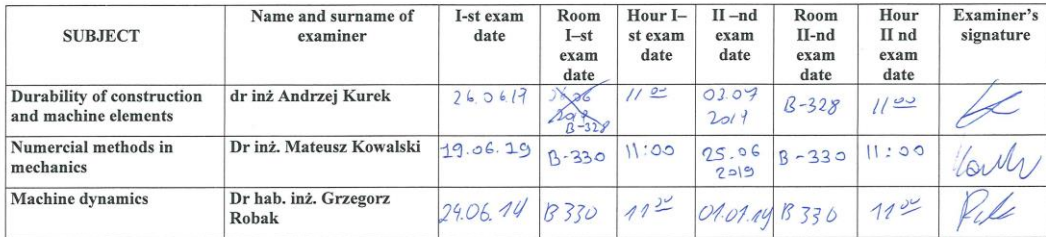 SUBJECT
Name and surname of examiner
I-st exam date
Room I–st exam date
Hour I–st exam date
II –nd exam date
Room II-nd exam date
Hour II nd exam date
Examiner's signature
Durability of construction and machine elements
dr inż Andrzej Kurek
26.06.19
B-328
11 00
03.07 2019
B-328
11 00
Numercial methods in mechanics
Dr inż. Mateusz Kowalski
19.06.19
B-330
11:00
25.06 2019
B-330
11:00
Machine dynamics
Dr hab. inż. Grzegorz Robak
24.06.19
B 330
11 00
B 330
11 00